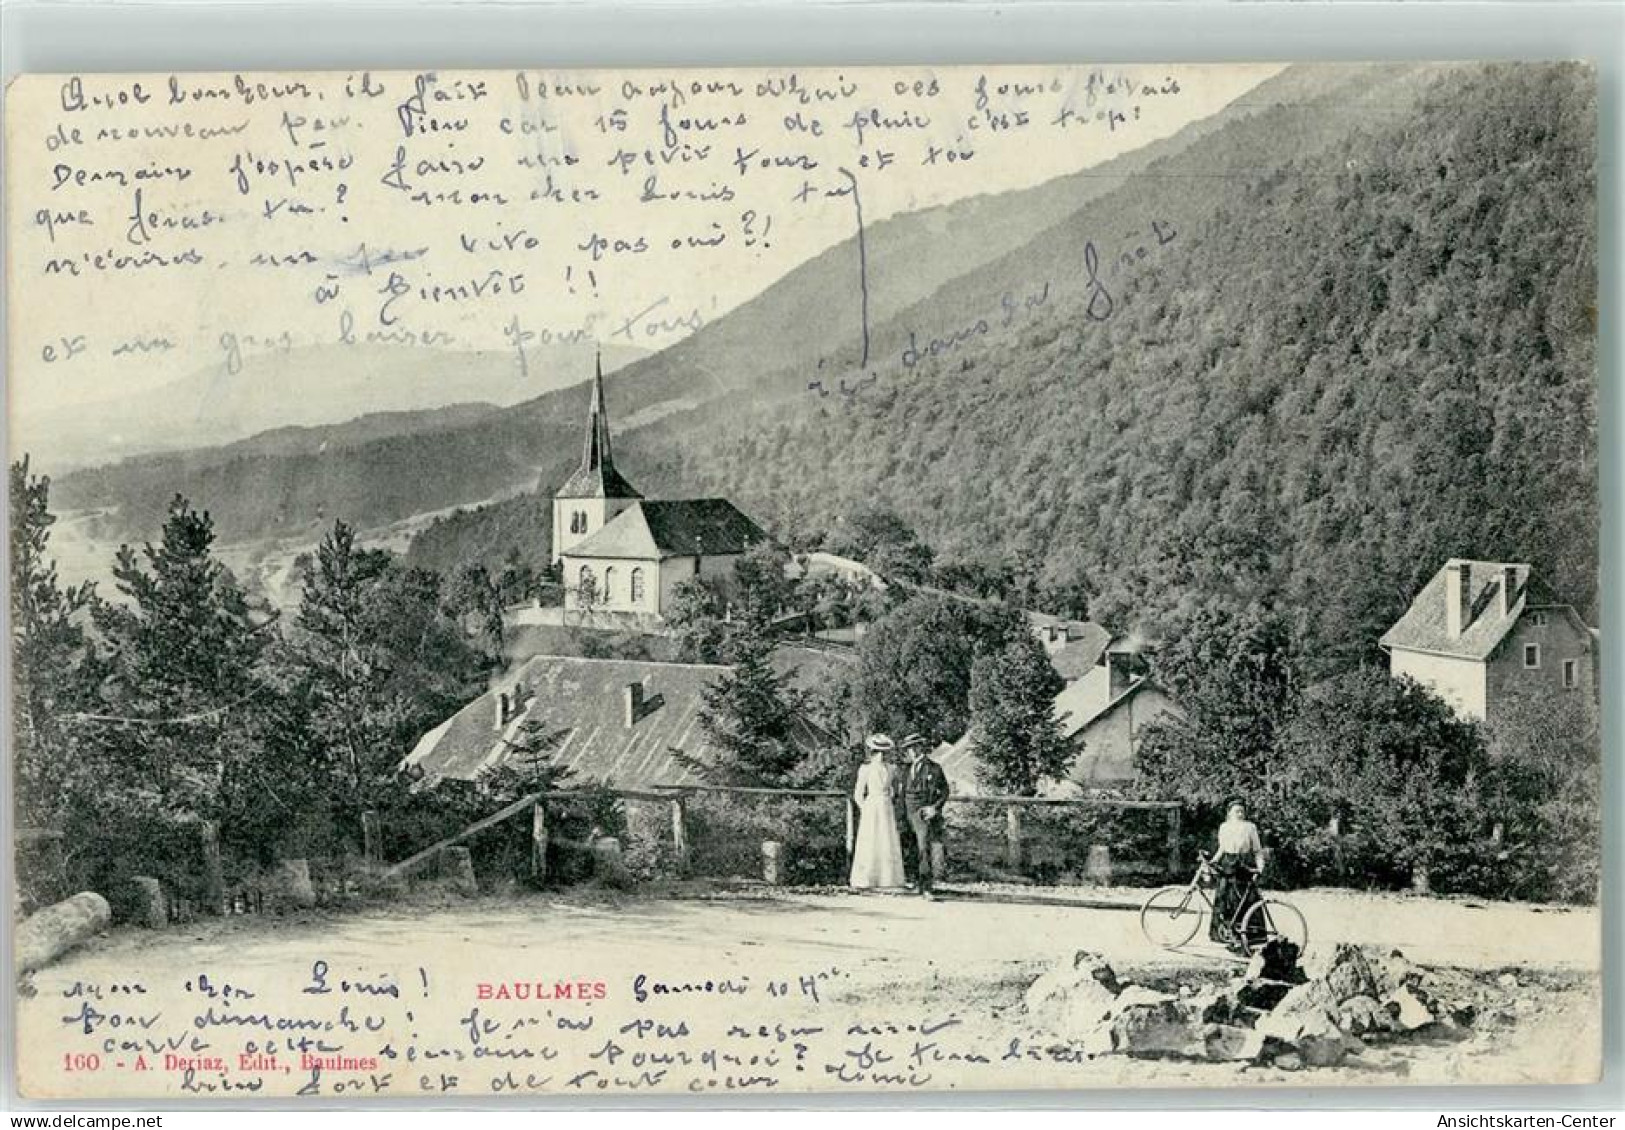 Quel bonheur, il fait beau aujourd'hui ces jours j'étais
de nouveau peu bien car 15 jours de pluie c'est trop!
Demain j'espère faire un petit tour et toi
que feras-tu? mon cher Louis tu
m'écriras un peu vite pas oui?!
à Bientôt!!
et un gros baiser pour tous
dans la forêt
mon cher Louis!
BAULMES
Samedi 10 Hrs.
Bon dimanche! Je n'ai pas reçu une
carte cette semaine pourquoi? Je
160 - A. Deriaz, Edit., Baulmes
bien fort et de tout coeur
Ansichtskarten-Center